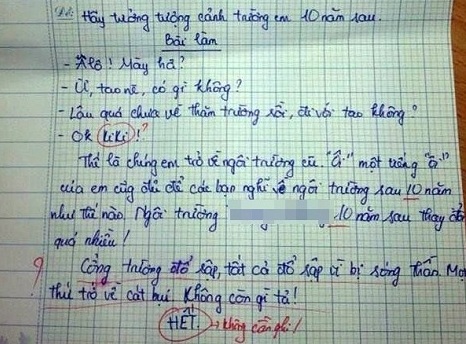 Đề: Hãy tưởng tượng cảnh trường em 10 năm sau.
Bài làm
- Alô! Mày hả?
- Ừ, tao nè, có gì không?
- Lâu quá chưa về thăm trường rồi, đi với tao không?
- Ok kiki!?
Thế là chúng em trở về ngôi trường cũ. "Á" một tiếng "á"
của em cũng đủ để các bạn nghĩ về ngôi trường sau 10 năm
như thế nào. Ngôi trường 10 năm sau thay đổi
quá nhiều!
? Cổng trường đổ sập, tất cả đổ sập vì bị sóng thần. Mọi
thứ trở về cát bụi không còn gì tả!
HẾT. → không cần ghi!